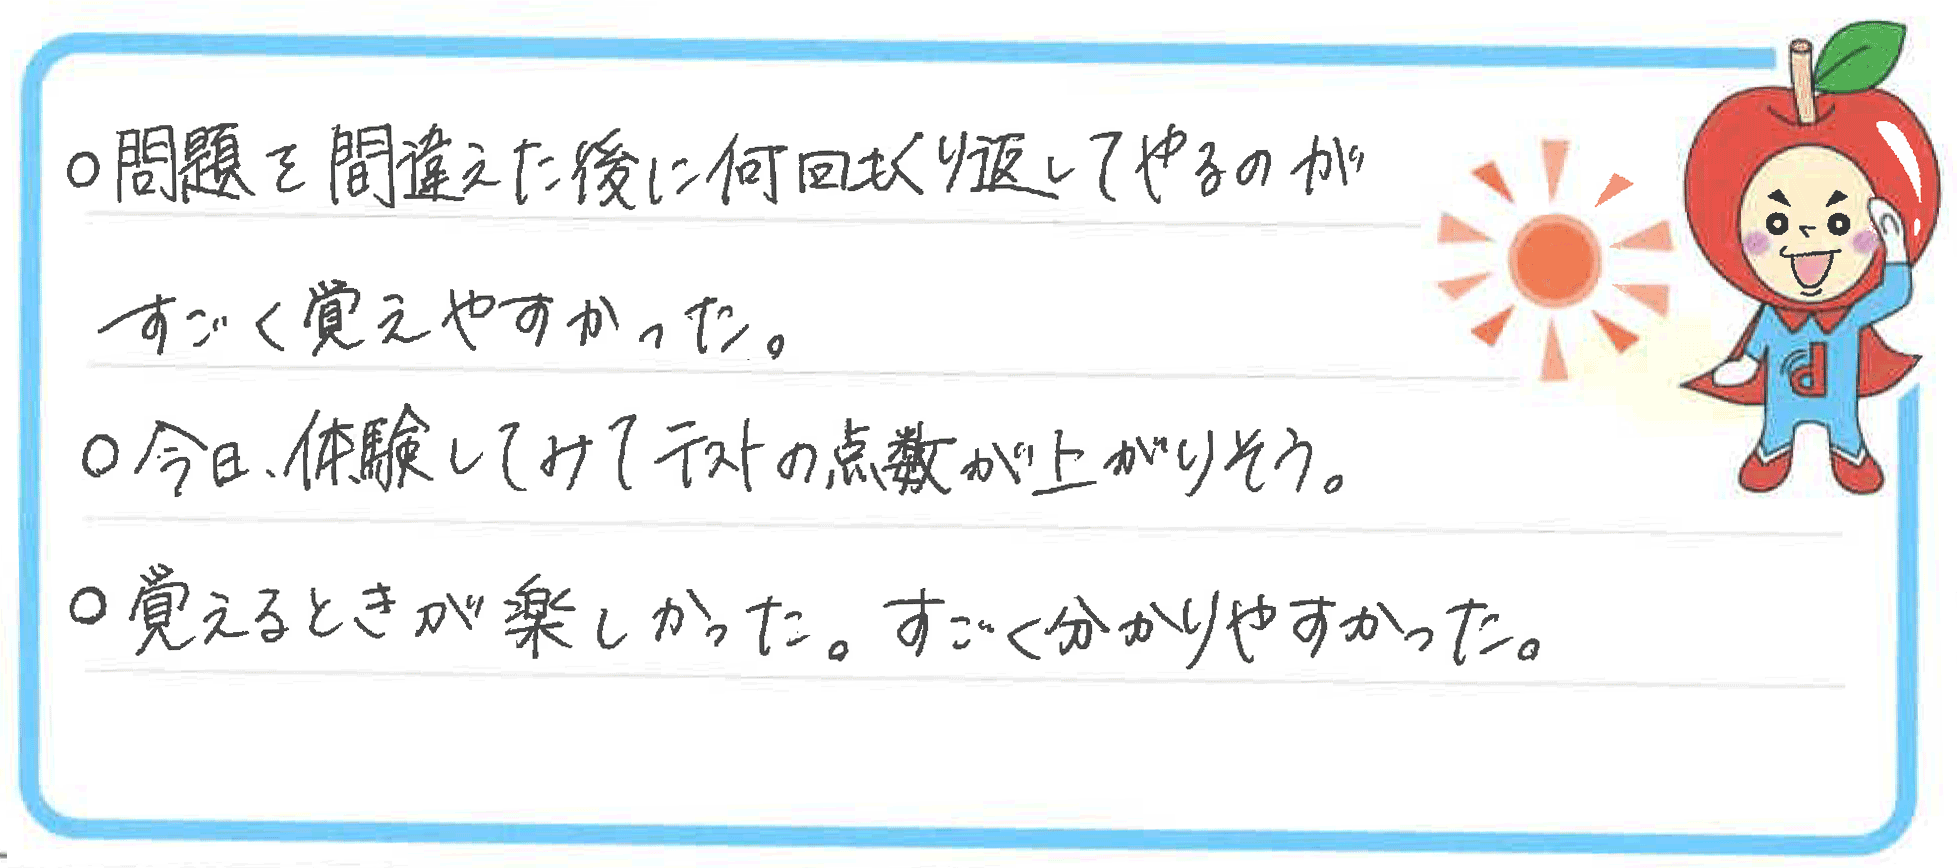 ○問題を間違えた後に何回もくり返してやるのが
すごく覚えやすかった。
○今日、体験してみてテストの点数が上がりそう。
○覚えるときが楽しかった。すごく分かりやすかった。